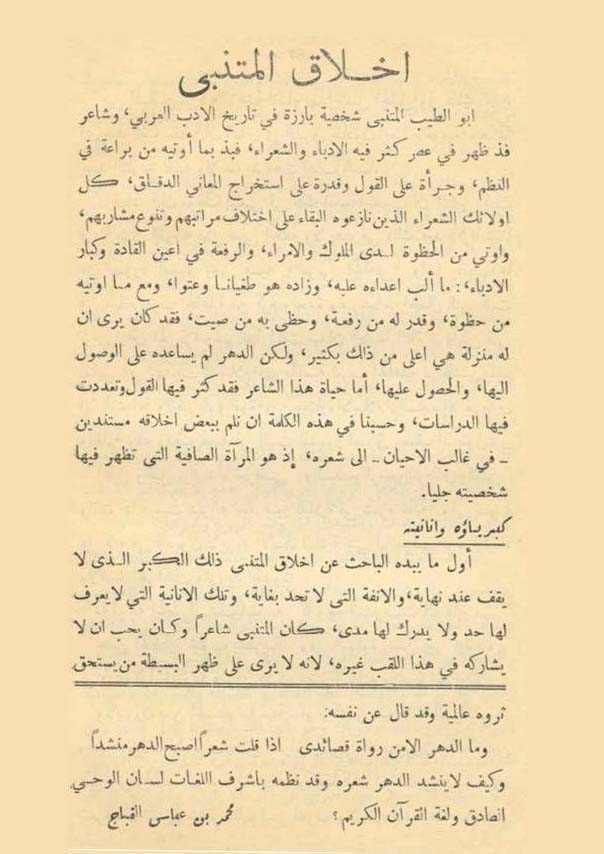 اخلاق المتنبى
ابو الطيب المتنبى شخصية بارزة في تاريخ الادب العربي، وشاعر
فذ ظهر في عصر كثر فيه الادباء والشعراء، فبذ بما أوتيه من براعة في
النظم، وجرأة على القول وقدرة على استخراج المعاني الدقاق، كل
اولائك الشعراء الذين نازعوه البقاء على اختلاف مراتبهم وتنوع مشاربهم،
واوتي من الحظوة لدى الملوك والامراء، والرفعة في اعين القادة وكبار
الادباء، : ما ألب اعداءه عليه، وزاده هو طغيانا وعتوا، ومع ما اوتيه
من حظوة، وقدر له من رفعة، وحظى به من صيت، فقد كان يرى ان
له منزلة هي اعلى من ذلك بكثير، ولكن الدهر لم يساعده على الوصول
اليها، والحصول عليها، أما حياة هذا الشاعر فقد كثر فيها القول وتعددت
فيها الدراسات، وحسبنا في هذه الكلمة ان نلم ببعض اخلاقه مستندين
- في غالب الاحيان - الى شعره، إذ هو المرآة الصافية التى تظهر فيها
شخصيته جليا.
كبرياؤه وانانيته
أول ما يبده الباحث عن اخلاق المتنبى ذلك الكبر الذى لا
يقف عند نهاية، والانفة التى لا تحد بغاية، وتلك الانانية التي لا يعرف
لها حد ولا يدرك لها مدى، كان المتنبى شاعرا وكان يحب ان لا
يشاركه في هذا اللقب غيره، لانه لا يرى على ظهر البسيطة من يستحق
ثروه عالمية وقد قال عن نفسه:
وما الدهر الا من رواة قصائدى اذا قلت شعرا اصبح الدهر منشدا
وكيف لا ينشد الدهر شعره وقد نظمه باشرف اللغات لسان الوحي
الصادق ولغة القرآن الكريم؟ محمد بن عباس القباج